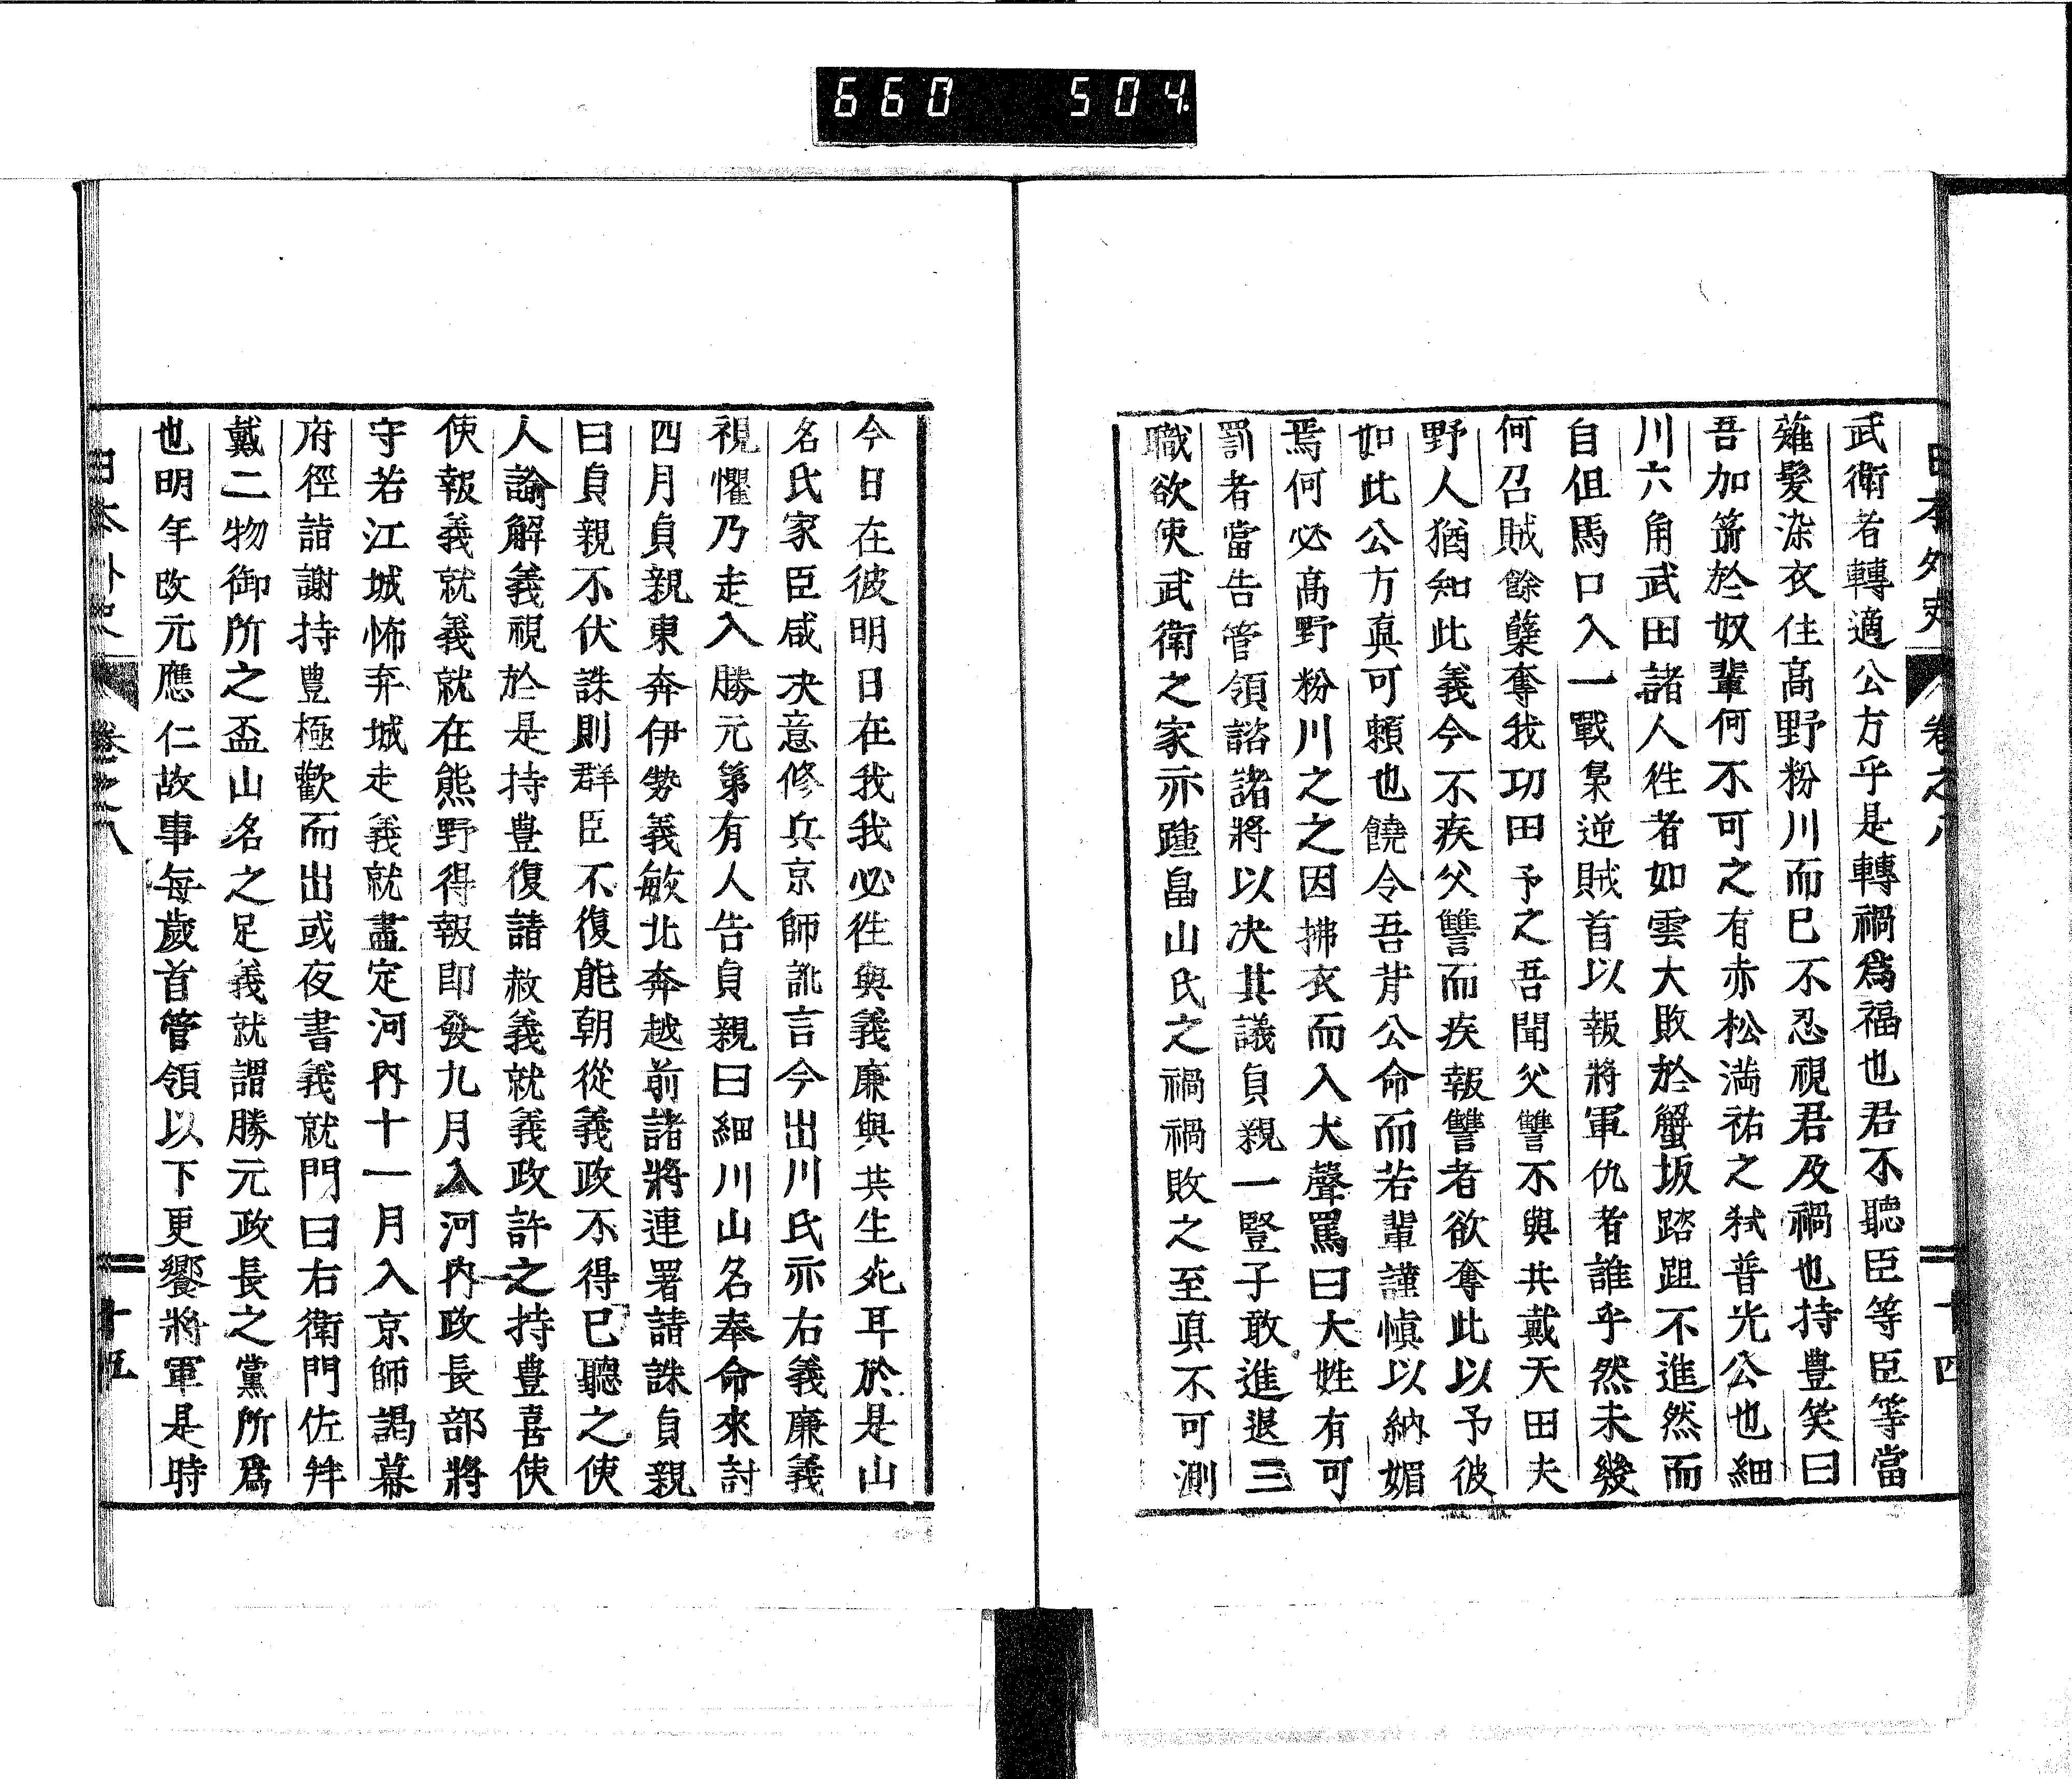 660 504
日本外史 卷之八 十四
武衛者轉適公方乎是轉禍爲福也君不聽臣等臣等當
薙髮染衣住高野粉川而已不忍視君及禍也持豊笑曰
吾加箭於奴輩何不可之有赤松満祐之弑普光公也細
川六角武田諸人徃者如雲大敗於蟹坂踏跙不進然而
自伹馬口入一戰梟逆賊首以報將軍仇者誰乎然未幾
何召賊餘蘗奪我功田予之吾聞父讐不與共戴天田夫
野人猶知此義今不疾父讐而疾報讐者欲奪此以予彼
如此公方真可賴也饒令吾背公命而若輩謹愼以納媚
焉何必高野粉川之之因拂衣而入大聲罵曰大姓有可
罰者當告管領諮諸將以决其議貞親一豎子敢進退三
職欲使武衛之家亦踵畠山氏之禍禍敗之至真不可測
今日在彼明日在我我必徃與義廉與共生死耳於是山
名氏家臣咸决意修兵京師訛言今出川氏亦右義廉義
視懼乃走入勝元第有人告貞親曰細川山名奉命來討
四月貞親東奔伊勢義敏北奔越前諸將連署請誅貞親
曰貞親不伏誅則群臣不復能朝從義政不得已聽之使
人諭解義視於是持豊復請赦義就義政許之持豊喜使
使報義就義就在熊野得報即發九月入河内政長部將
守若江城怖弃城走義就盡定河内十一月入京師謁幕
府徑詣謝持豊極歡而出或夜書義就門曰右衛門佐幷
戴二物御所之盃山名之足義就謂勝元政長之黨所爲
也明年改元應仁故事每歲首管領以下更饗將軍是時
日本外史 卷之八 十五